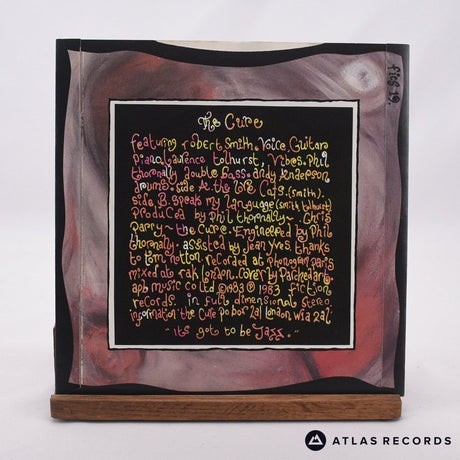 The Cure
featuring robert Smith. Voice. Guitar
piano. Laurence tolhurst, Vibes. Phil
thornally double bass. andy anderson
drums. side A. the love Cats. (smith).
side B. speak my language (smith tolhurst)
produced by phil thornally~. Chris
parry~ the cure. Engineered by Phil
thornally. assisted by Jean Yves. thanks
to tom notton. recorded at phonogram paris
mixed at rak london. cover by Parchedart.
apb music co ltd. ©1983 ℗ 1983 fiction
records. in full dimensional stereo.
information the cure po box 2al london w1a 2al
"its got to be Jazz."
fics 19.
ATLAS RECORDS